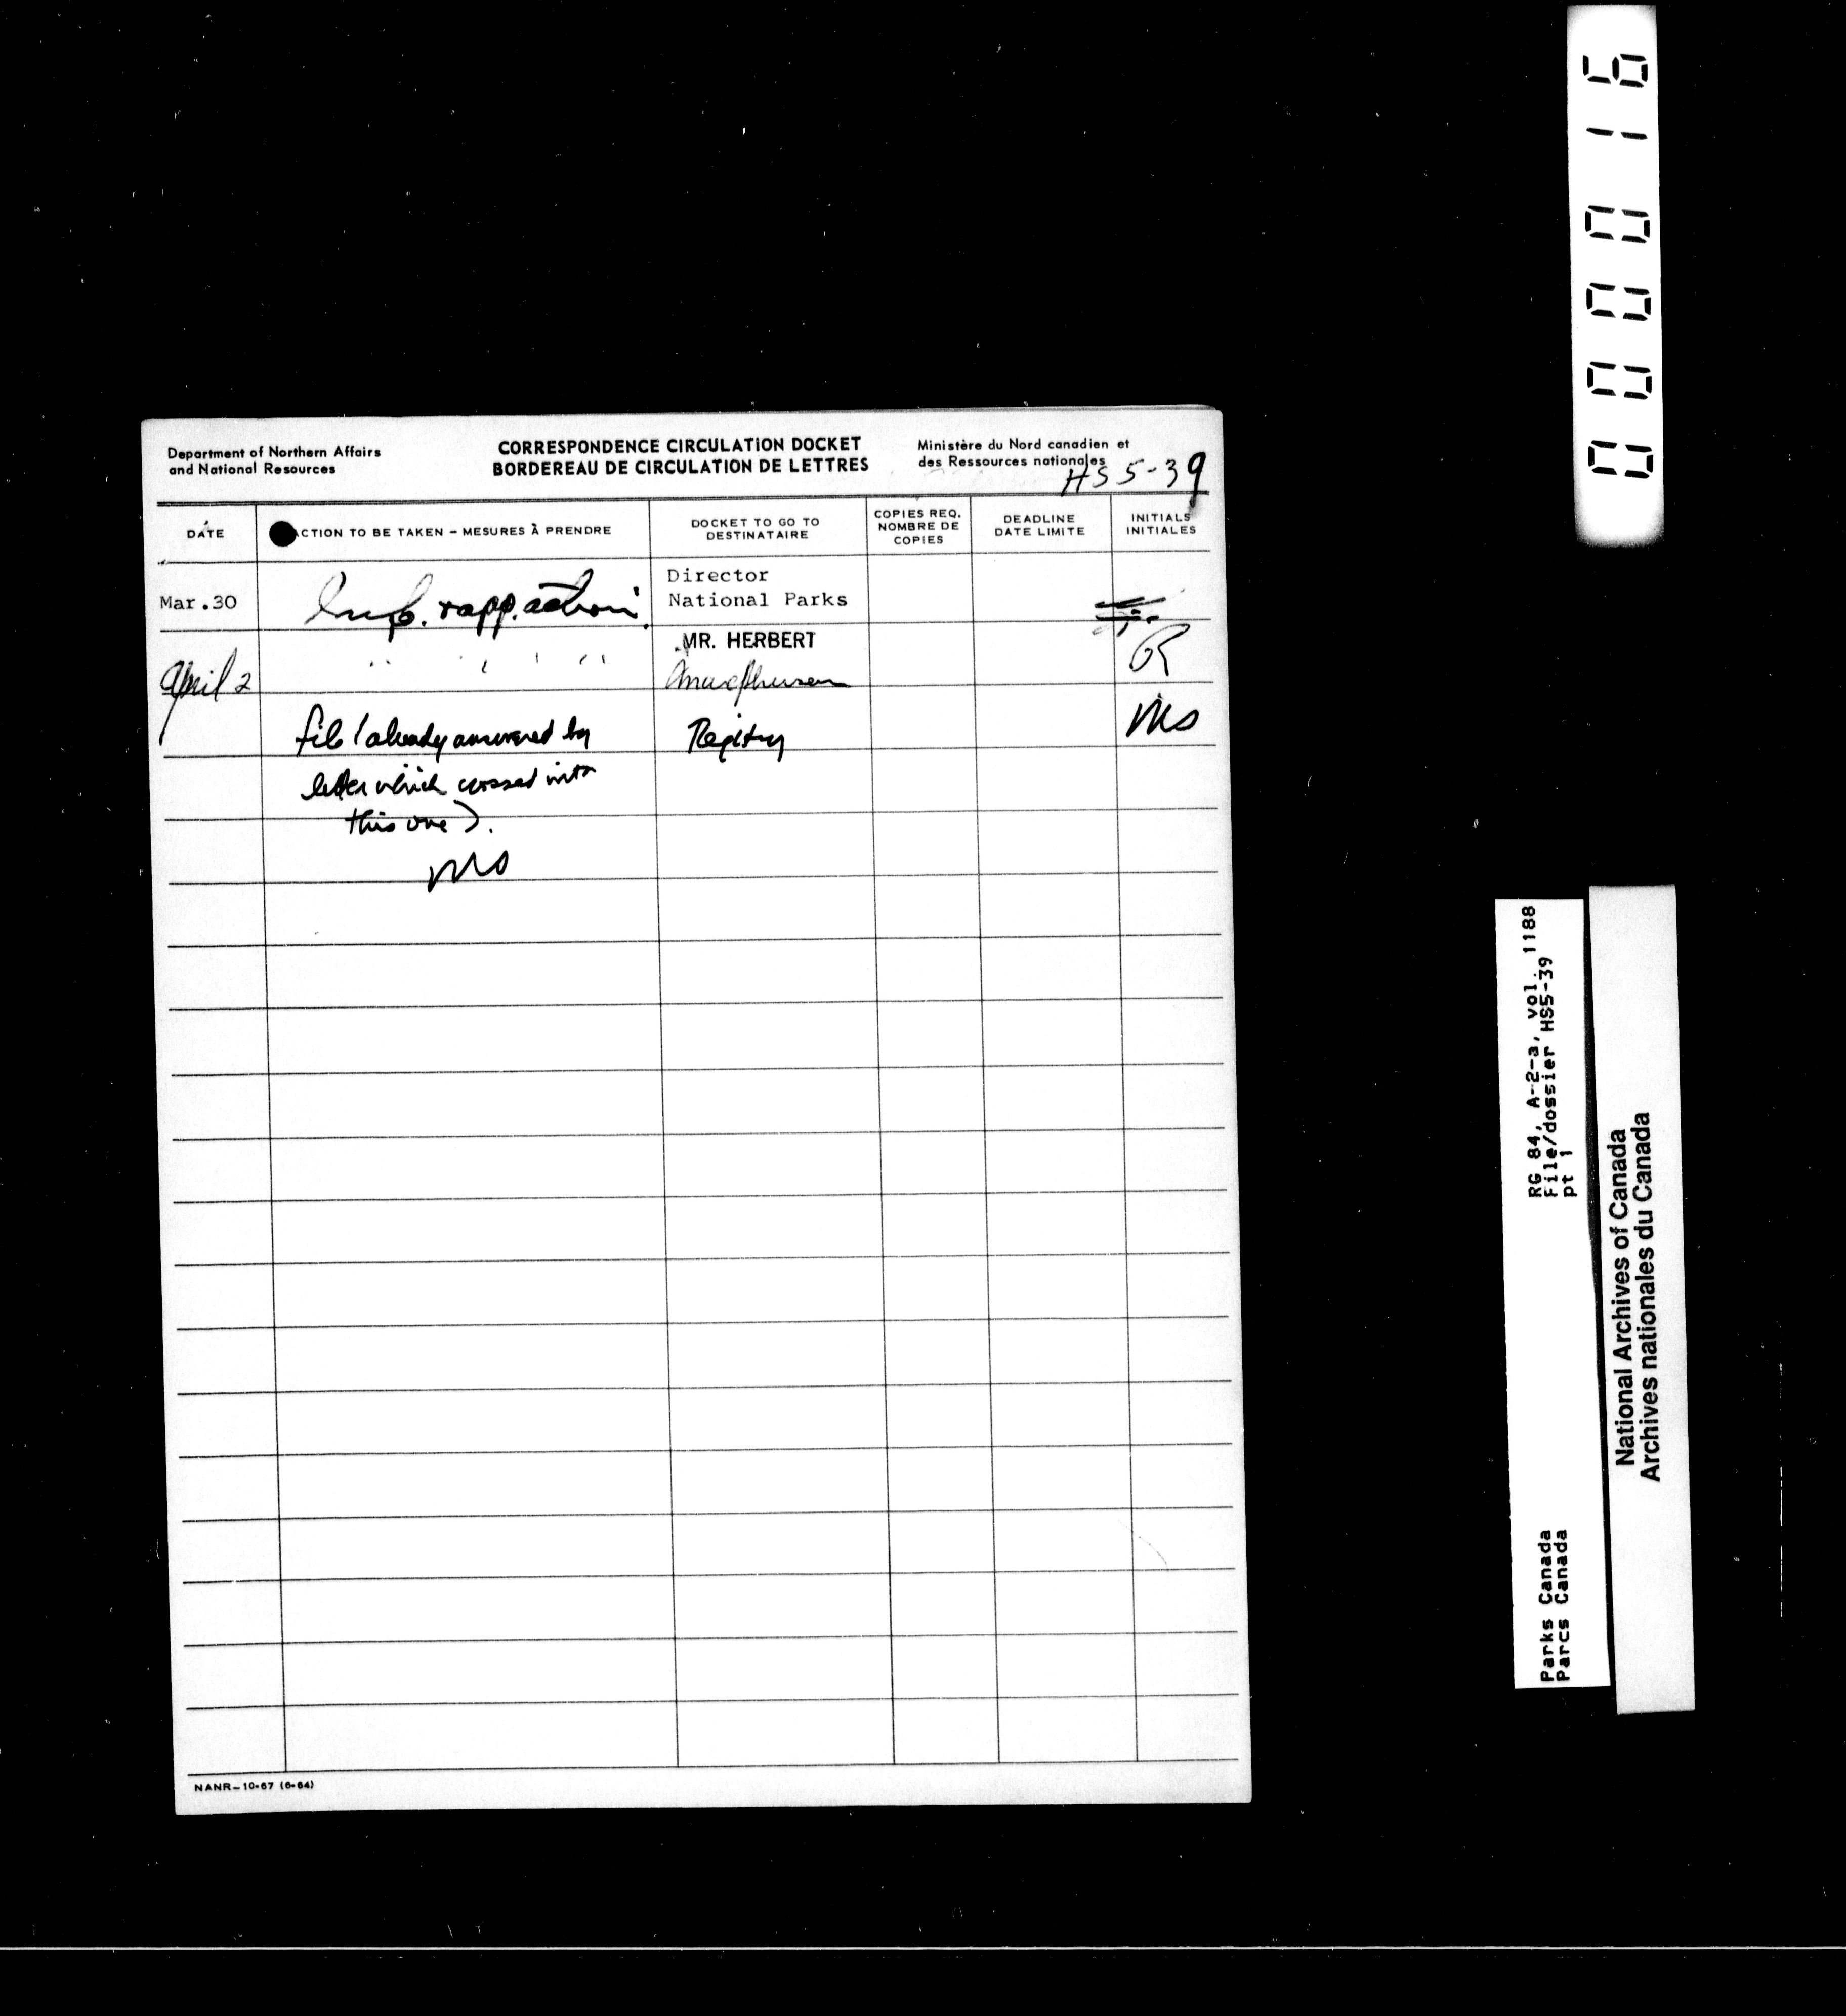 000016
Department of Northern Affairs
and National Resources
CORRESPONDENCE CIRCULATION DOCKET
BORDEREAU DE CIRCULATION DE LETTRES
Ministère du Nord canadien et
des Ressources nationales
HS5-39
DATE
ACTION TO BE TAKEN – MESURES À PRENDRE
DOCKET TO GO TO
DESTINATAIRE
COPIES REQ.
NOMBRE DE
COPIES
DEADLINE
DATE LIMITE
INITIALS
INITIALES
Mar.30
app. action
Director
National Parks
MR. HERBERT
April 2
file (already answered by
Registry
MS
letter which crossed with
this one).
MS
NANR–10-67 (6-64)
RG 84, A-2-a, vol. 1188
File/dossier HS5-39
pt 1
Parks Canada
Parcs Canada
National Archives of Canada
Archives nationales du Canada